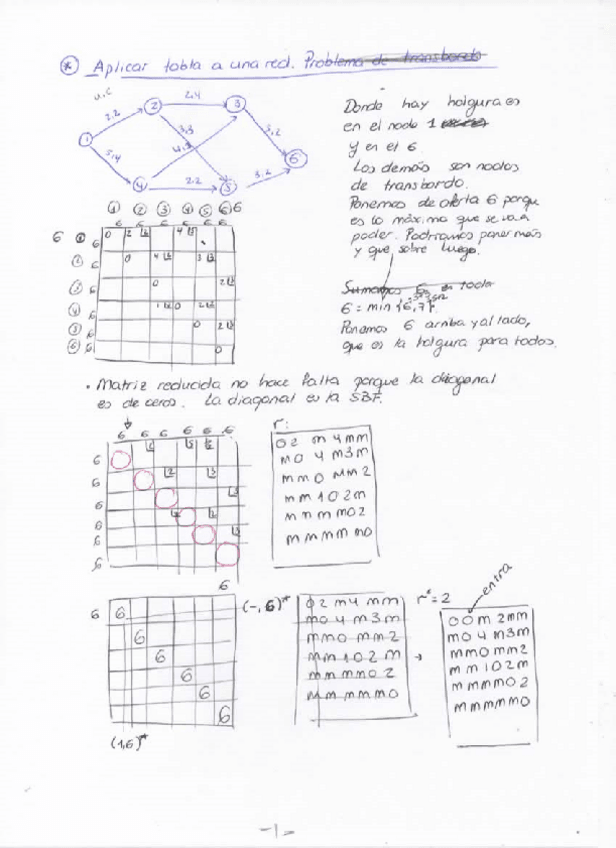 * Aplicar tabla a una red. Problema de transbordo
u,c
2,2
2,4
3,3
4,3
5,4
2,2
5,2
3,2
1 2 3 4 5 6
Donde hay holgura es
en el nodo 1
y en el 6.
Los demás son nodos
de transbordo.
Ponemos de oferta 6 porque
es lo máximo que se va a
poder. Podríamos poner más
y que sobre luego.
Sumamos 6 en todo
6 = min {6,7}
Ponemos 6 arriba y al lado,
que es la holgura para todos.
① ② ③ ④ ⑤ ⑥ 6
6 6 6 6 6 6
6 ① 6 0 2 4
② 6 0 4 3
③ 6 0 2
④ 6 1 0 2
⑤ 6 0 2
⑥ 6 0
• Matriz reducida no hace falta porque la diagonal
es de ceros. La diagonal es la SBF.
6 6 6 6 6 6
6
6
6
6
6
6
r:
0 2 m 4 m m
m 0 4 m 3 m
m m 0 m m 2
m m 1 0 2 m
m m m m 0 2
m m m m m 0
6
6 6 (-, 6)*
6
6
6
6
6
(1,6)*
0 2 m 4 m m
m 0 4 m 3 m
m m 0 m m 2
m m 1 0 2 m
m m m m 0 2
m m m m m 0
→
r* = 2
entra
0 0 m 2 m m
m 0 4 m 3 m
m m 0 m m 2
m m 1 0 2 m
m m m m 0 2
m m m m m 0
-1-